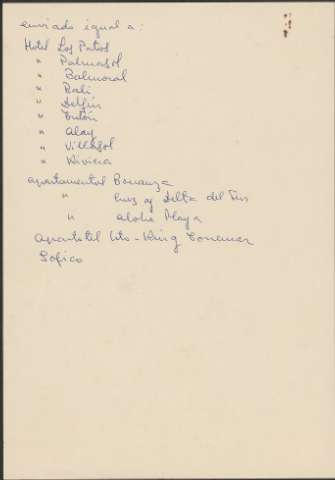 enviado igual a:
Hotel Los Patos
" Palmasol
" Balmoral
" Bali
" Delfin
" Tritón
" Alay
" Villasol
" Riviera
apartamentos Bonanza
" Delta del Sur
" Aloha Playa
Apartotel Tito-King
Sofico